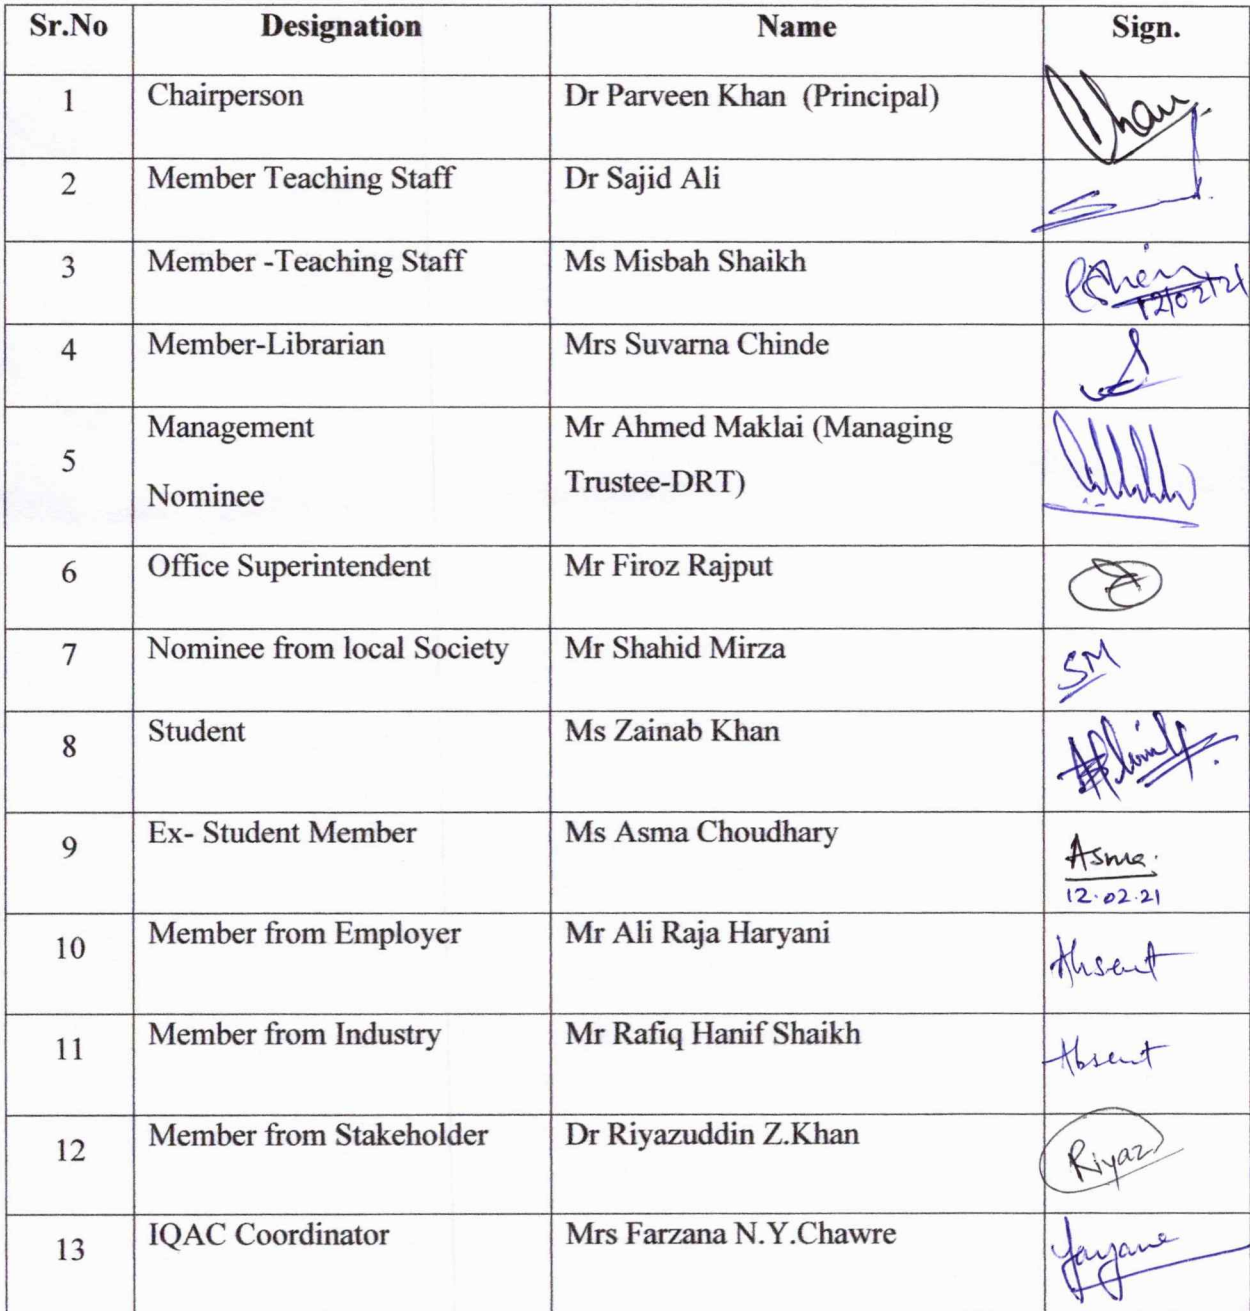 Sr.No Designation Name Sign.
1 Chairperson Dr Parveen Khan (Principal) Khan
2 Member Teaching Staff Dr Sajid Ali
3 Member -Teaching Staff Ms Misbah Shaikh
12/02/21
4 Member-Librarian Mrs Suvarna Chinde
5 Management Mr Ahmed Maklai (Managing
Nominee Trustee-DRT)
6 Office Superintendent Mr Firoz Rajput
7 Nominee from local Society Mr Shahid Mirza SM
8 Student Ms Zainab Khan
9 Ex- Student Member Ms Asma Choudhary Asma.
12.02.21
10 Member from Employer Mr Ali Raja Haryani Absent
11 Member from Industry Mr Rafiq Hanif Shaikh Absent
12 Member from Stakeholder Dr Riyazuddin Z.Khan Riyaz
13 IQAC Coordinator Mrs Farzana N.Y.Chawre